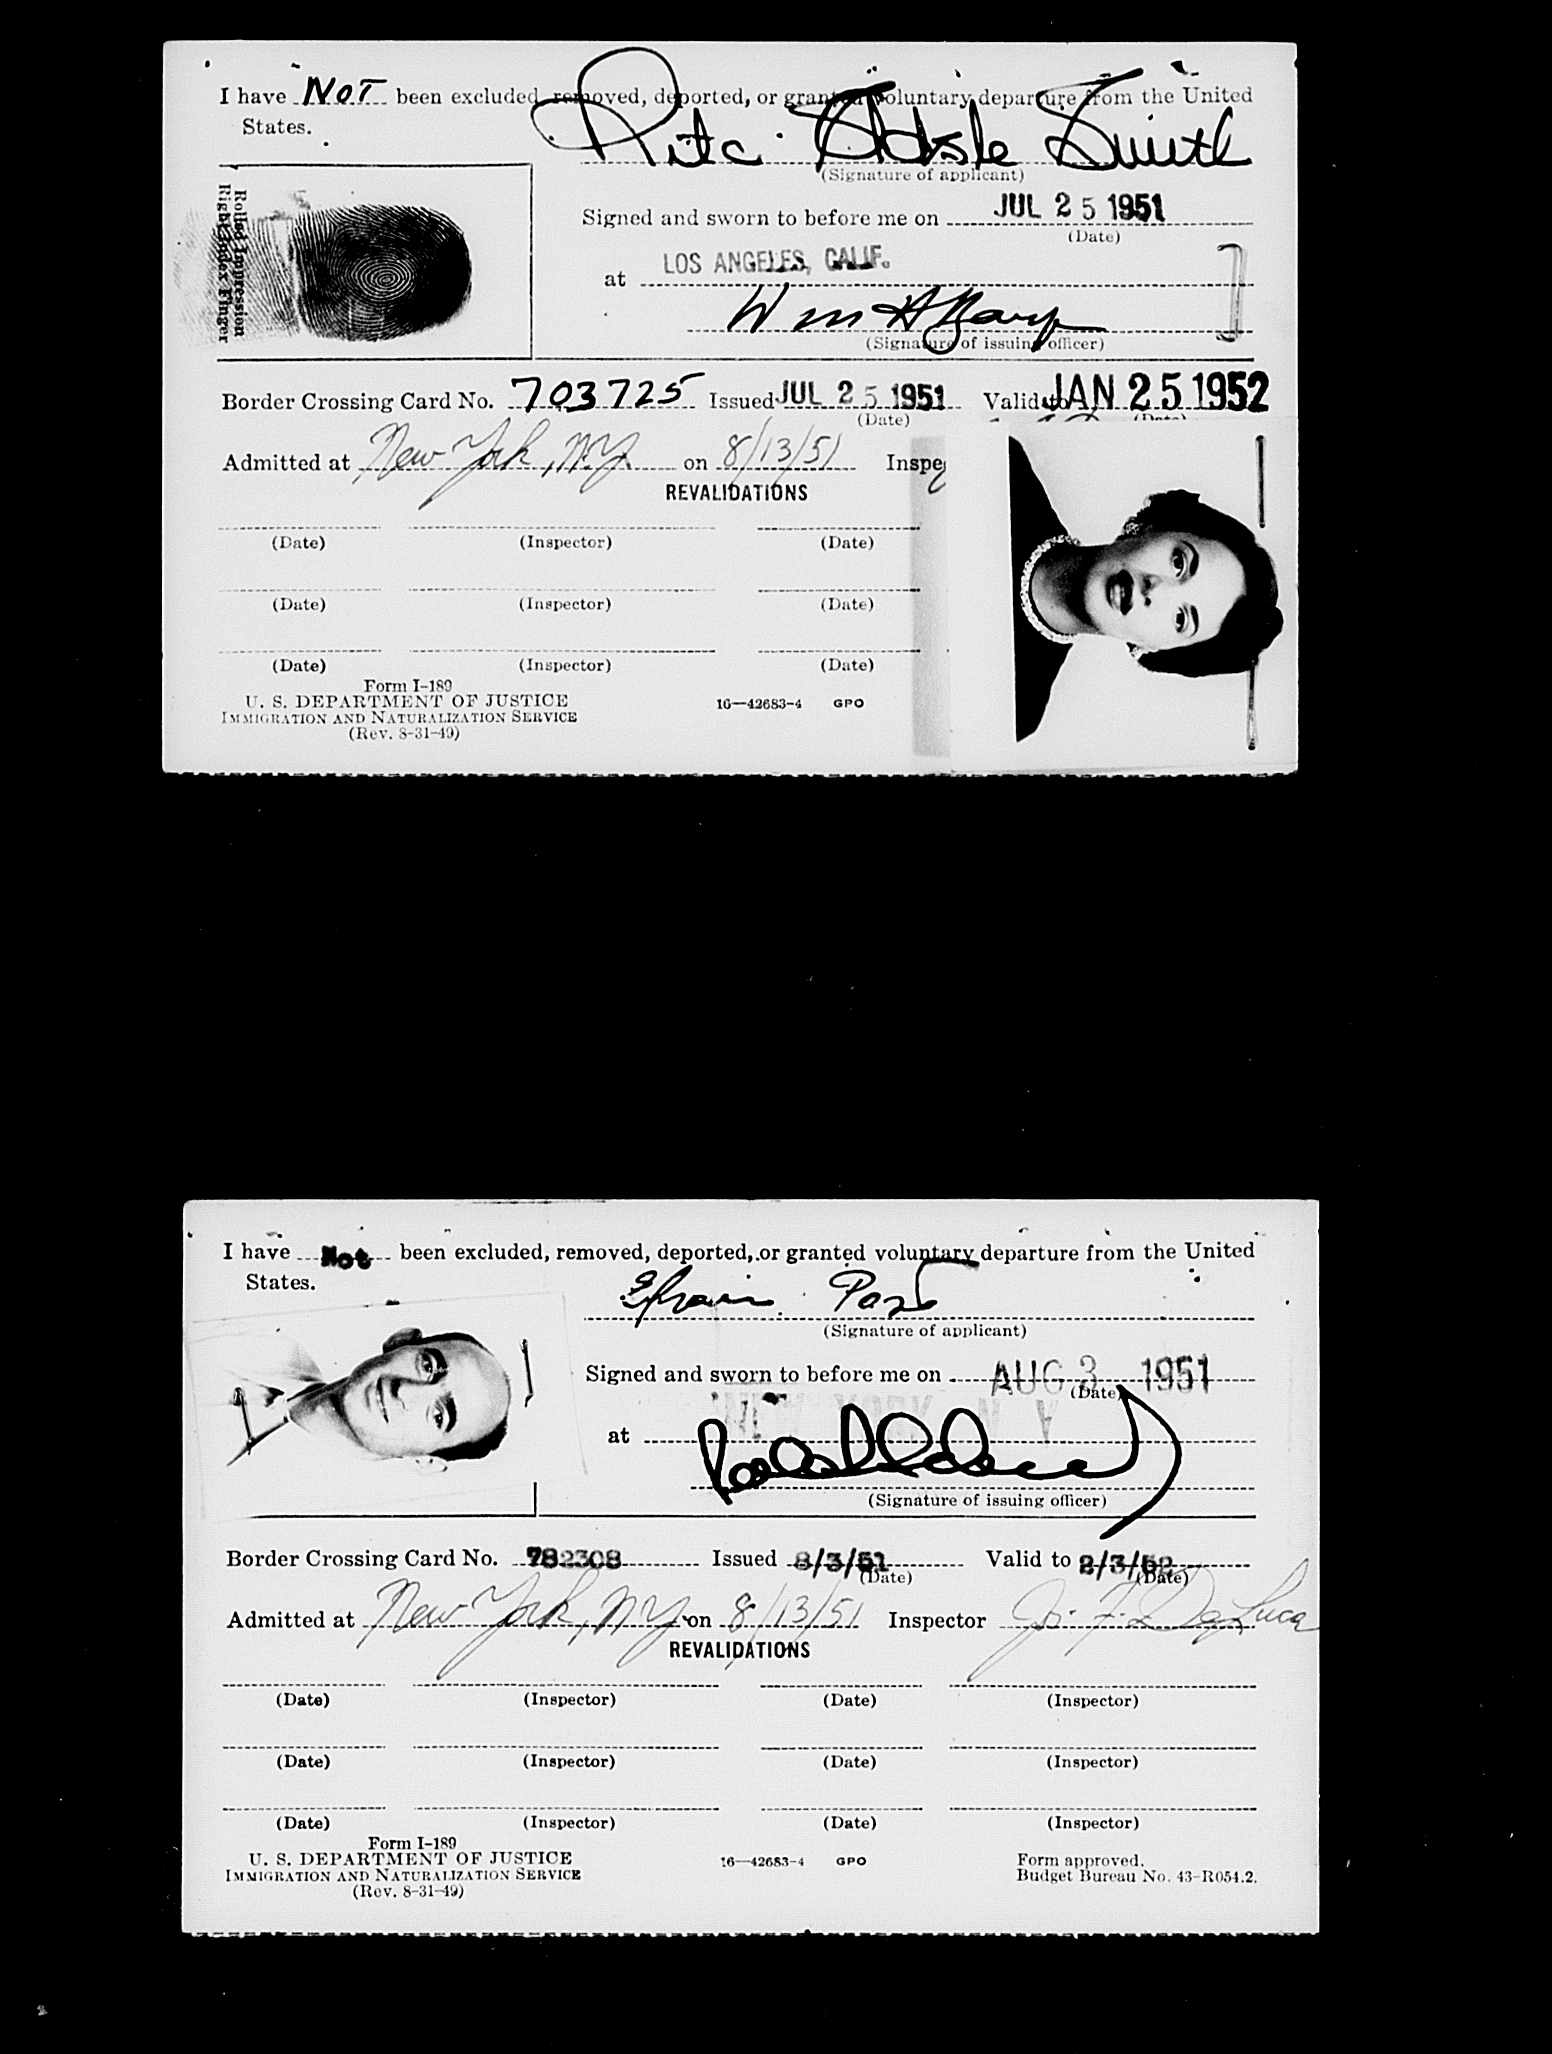 I have NOT been excluded, removed, deported, or granted voluntary departure from the United
States.
Rita Smith
(Signature of applicant)
Rolled Impression
Right Index Finger
Signed and sworn to before me on JUL 25 1951
(Date)
at LOS ANGELES, CALIF.
Wm H
(Signature of issuing officer)
Border Crossing Card No. 703725 Issued JUL 25 1951 Valid to JAN 25 1952
(Date) (Date)
Admitted at New York, N.Y. on 8/13/51 Inspe
REVALIDATIONS
(Date) (Inspector) (Date)
(Date) (Inspector) (Date)
(Date) (Inspector) (Date)
Form I-189
U. S. DEPARTMENT OF JUSTICE 16—42683-4 GPO
IMMIGRATION AND NATURALIZATION SERVICE
(Rev. 8-31-49)
I have Not been excluded, removed, deported, or granted voluntary departure from the United
States.
Efrain Paz
(Signature of applicant)
Signed and sworn to before me on AUG 3 1951
(Date)
at
(Signature of issuing officer)
Border Crossing Card No. 782308 Issued 8/3/51 Valid to 2/3/52
(Date) (Date)
Admitted at New York, NY on 8/13/51 Inspector Js. F. DeLuca
REVALIDATIONS
(Date) (Inspector) (Date) (Inspector)
(Date) (Inspector) (Date) (Inspector)
(Date) (Inspector) (Date) (Inspector)
Form I-189
U. S. DEPARTMENT OF JUSTICE 16—42683-4 GPO Form approved.
IMMIGRATION AND NATURALIZATION SERVICE Budget Bureau No. 43-R054.2.
(Rev. 8-31-49)